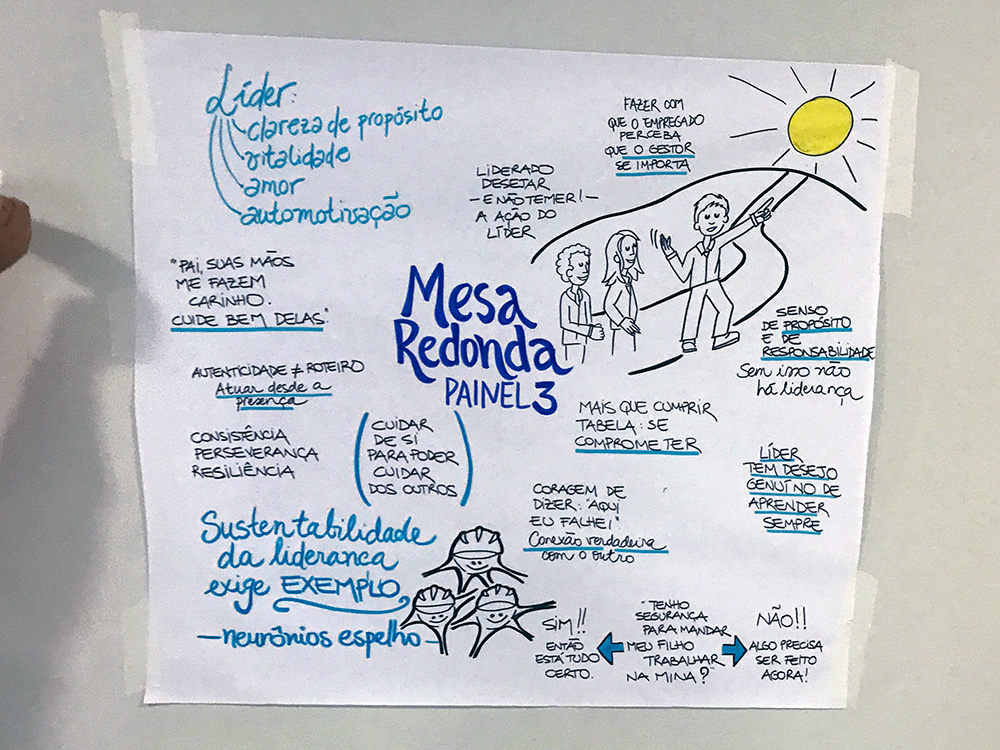 Líder:
clareza de propósito
vitalidade
amor
automotivação
FAZER COM
QUE O EMPREGADO
PERCEBA
QUE O GESTOR
SE IMPORTA
LIDERADO
DESEJAR
— E NÃO TEMER! —
A AÇÃO DO
LÍDER
"PAI, SUAS MÃOS
ME FAZEM
CARINHO.
CUIDE BEM DELAS."
Mesa
Redonda
PAINEL 3
SENSO
DE PROPÓSITO
E DE
RESPONSABILIDADE
Sem isso não
há liderança
AUTENTICIDADE ≠ ROTEIRO
Atuar desde a
presença
CONSISTÊNCIA
PERSEVERANÇA
RESILIÊNCIA
(CUIDAR
DE SI
PARA PODER
CUIDAR
DOS OUTROS)
MAIS QUE CUMPRIR
TABELA: SE
COMPROMETER
LÍDER
TEM DESEJO
GENUÍNO DE
APRENDER
SEMPRE
CORAGEM DE
DIZER: "AQUI
EU FALHEI".
Conexão verdadeira
com o outro
Sustentabilidade
da liderança
exige EXEMPLO
— neurônios espelho —
SIM!!
ENTÃO
ESTÁ TUDO
CERTO.
"TENHO
SEGURANÇA
PARA MANDAR
MEU FILHO
TRABALHAR
NA MINA?"
NÃO!!
ALGO PRECISA
SER FEITO
AGORA!